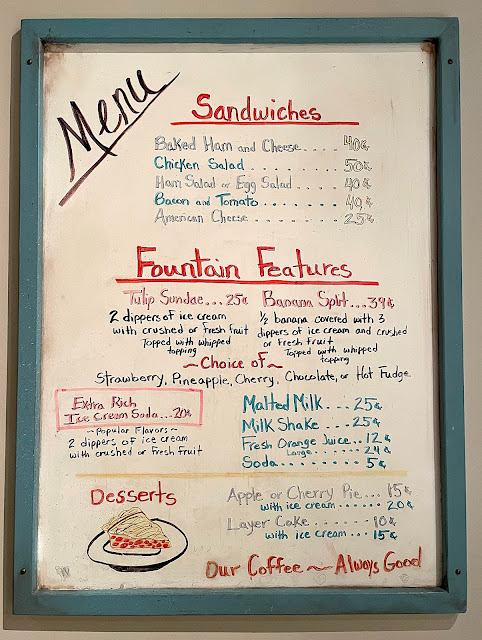 Menu
Sandwiches
Baked Ham and Cheese..... 40¢
Chicken Salad........ 50¢
Ham Salad or Egg Salad.... 40¢
Bacon and Tomato...... 40¢
American Cheese....... 25¢
Fountain Features
Tulip Sundae...25¢
2 dippers of ice cream
with crushed or fresh fruit
Topped with whipped
topping
Banana Split...39¢
1/2 banana covered with 3
dippers of ice cream and crushed
or fresh fruit
Topped with whipped
topping
~Choice of~
Strawberry, Pineapple, Cherry, Chocolate, or Hot Fudge
Extra Rich
Ice Cream Soda...20¢
~Popular Flavors~
2 dippers of ice cream
with crushed or fresh fruit
Malted Milk...25¢
Milk Shake...25¢
Fresh Orange Juice..12¢
Large.......24¢
Soda........5¢
Desserts
Apple or Cherry Pie...15¢
with ice cream......20¢
Layer Cake.......10¢
with ice cream...15¢
Our Coffee ~ Always Good